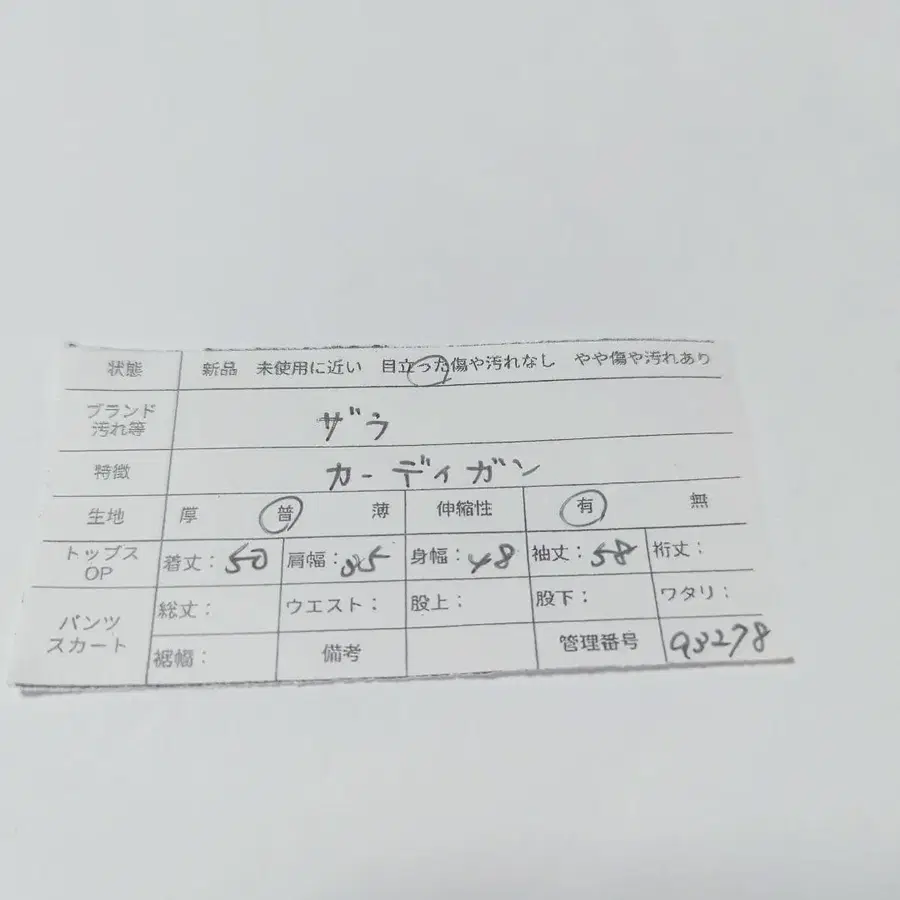 状態 新品 未使用に近い 目立った傷や汚れなし やや傷や汚れあり
ブランド
汚れ等
ザラ
特徴 カーディガン
生地 厚 普 薄 伸縮性 有 無
トップス
OP
着丈：50 肩幅：35 身幅：48 袖丈：58 裄丈：
パンツ
スカート
総丈： ウエスト： 股上： 股下： ワタリ：
裾幅： 備考 管理番号 93278